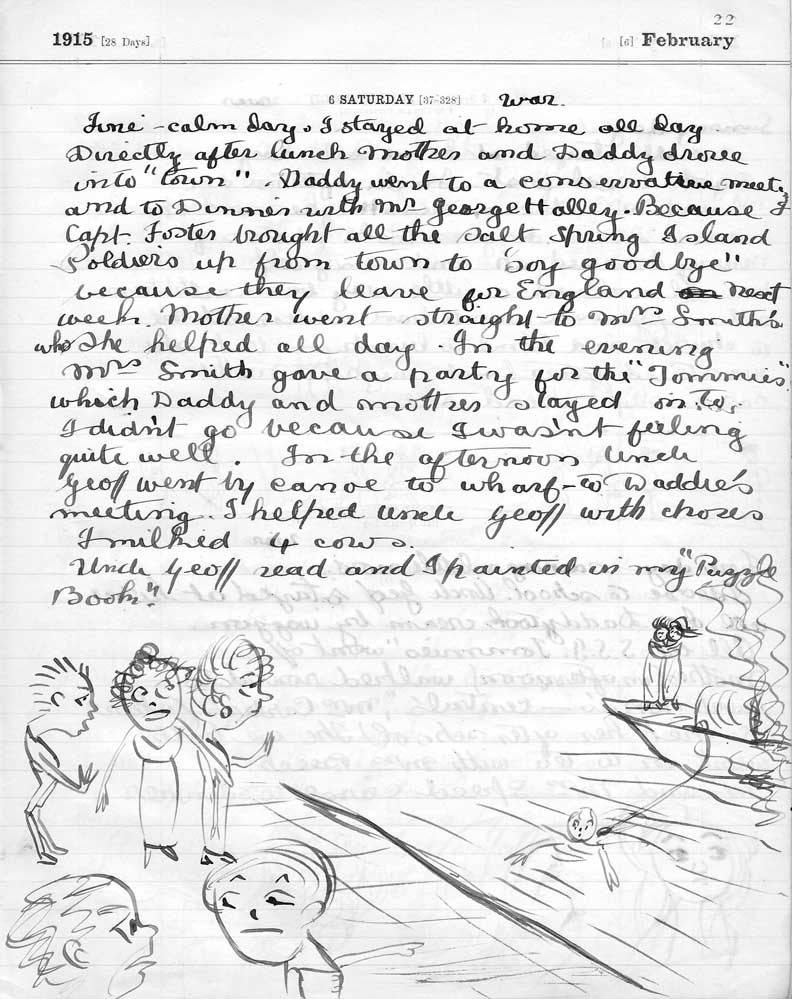 22
1915 [28 Days] [6] February
6 SATURDAY [37-328] war.
Fine - calm day. I stayed at home all day
Directly after lunch Mother and Daddy drove
into "town". Daddy went to a conservative meet
and to Dinner with Mr George Halley. Because
Capt. Foster brought all the Salt Spring Island
Soldiers up from town to "Say goodbye"
because they leave for England next
week. Mother went straight to Mrs Smith's
who She helped all day. In the evening
Mrs Smith gave a party for the "Tommies"
which Daddy and mother stayed on to.
I didn't go because I wasn't feeling
quite well. In the afternoon Uncle
Geoff went by canoe to wharf - to Daddie's
meeting. I helped uncle Geoff with chores
I milked 4 cows.
Uncle Geoff read and I painted in my "Puzzle
Book".